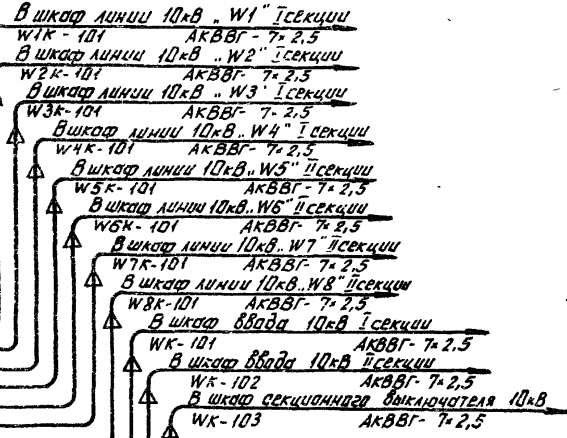 В шкаф линии 10кВ „W1" I секции
W1К-101 АКВВГ-7×2,5
В шкаф линии 10кВ „W2" I секции
W2К-101 АКВВГ-7×2,5
В шкаф линии 10кВ „W3" I секции
W3К-101 АКВВГ-7×2,5
В шкаф линии 10кВ „W4" I секции
W4К-101 АКВВГ-7×2,5
В шкаф линии 10кВ „W5" II секции
W5К-101 АКВВГ-7×2,5
В шкаф линии 10кВ „W6" II секции
W6К-101 АКВВГ-7×2,5
В шкаф линии 10кВ „W7" II секции
W7К-101 АКВВГ-7×2,5
В шкаф линии 10кВ „W8" II секции
W8К-101 АКВВГ-7×2,5
В шкаф ввода 10кВ I секции
WК-101 АКВВГ-7×2,5
В шкаф ввода 10кВ II секции
WК-102 АКВВГ-7×2,5
В шкаф секционного выключателя 10кВ
WК-103 АКВВГ-7×2,5